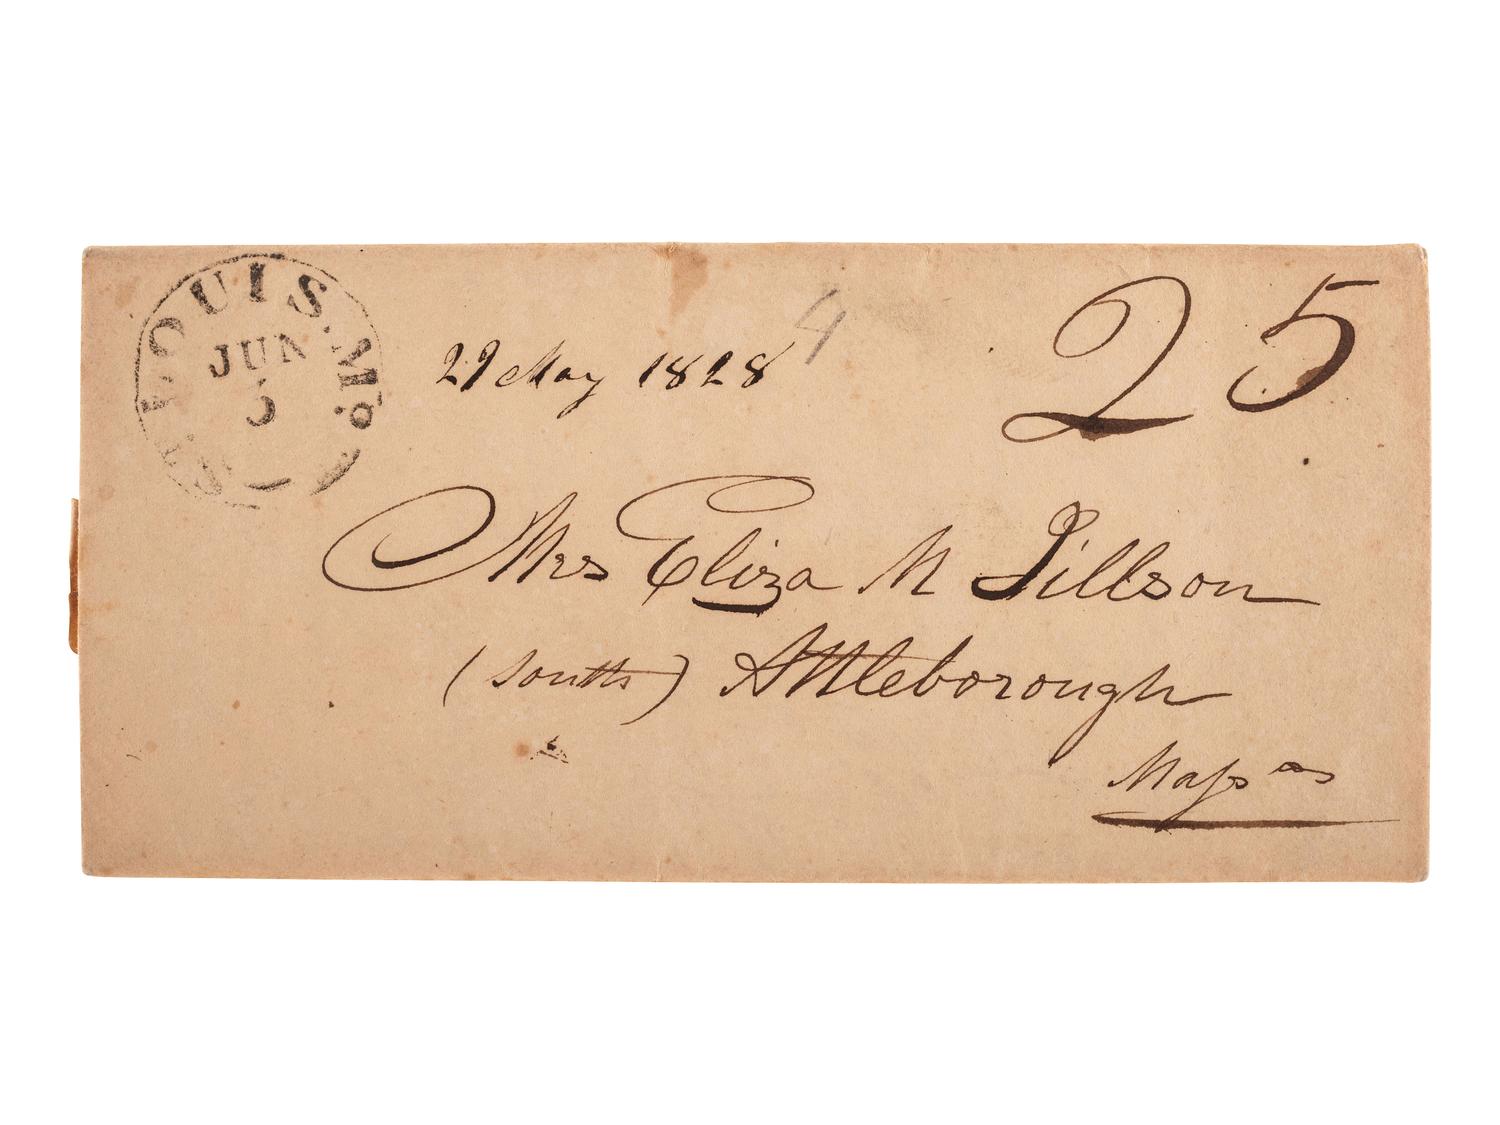 ST. LOUIS. Mº.
JUN
5
29 May 1828
4
25
Mrs Eliza M Jillson
(South) Attleborough
Maſs